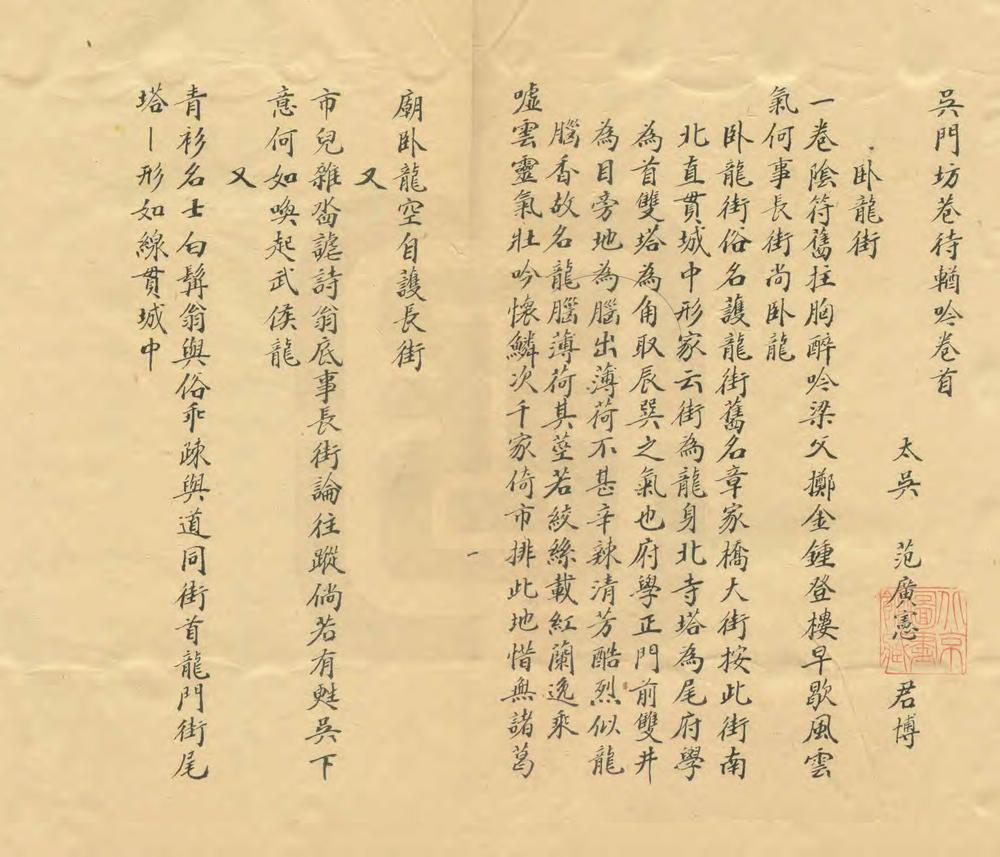 吳門坊巷待輶吟卷首
太吳 范廣憲 君博
臥龍街
一卷陰符舊拄胸醉吟梁父擲金鍾登樓早歇風雲
氣何事長街尚臥龍
臥龍街俗名護龍街舊名章家橋大街按此街南
北直貫城中形家云街為龍身北寺塔為尾府學
為首雙塔為角取辰巽之氣也府學正門前雙井
為目旁地為腦出薄荷不甚辛辣清芳酷烈似龍
腦香故名龍腦薄荷其莖若絞絲載紅蘭逸乘
噓雲靈氣壯吟懷鱗次千家倚市排此地惜無諸葛
廟臥龍空自護長街
又
市兒雜沓謔詩翁底事長街論往蹤倘若有甦吳下
意何如喚起武侯龍
又
青衫名士白髯翁與俗乖疎與道同街首龍門街尾
塔一形如線貫城中
北京圖書館藏